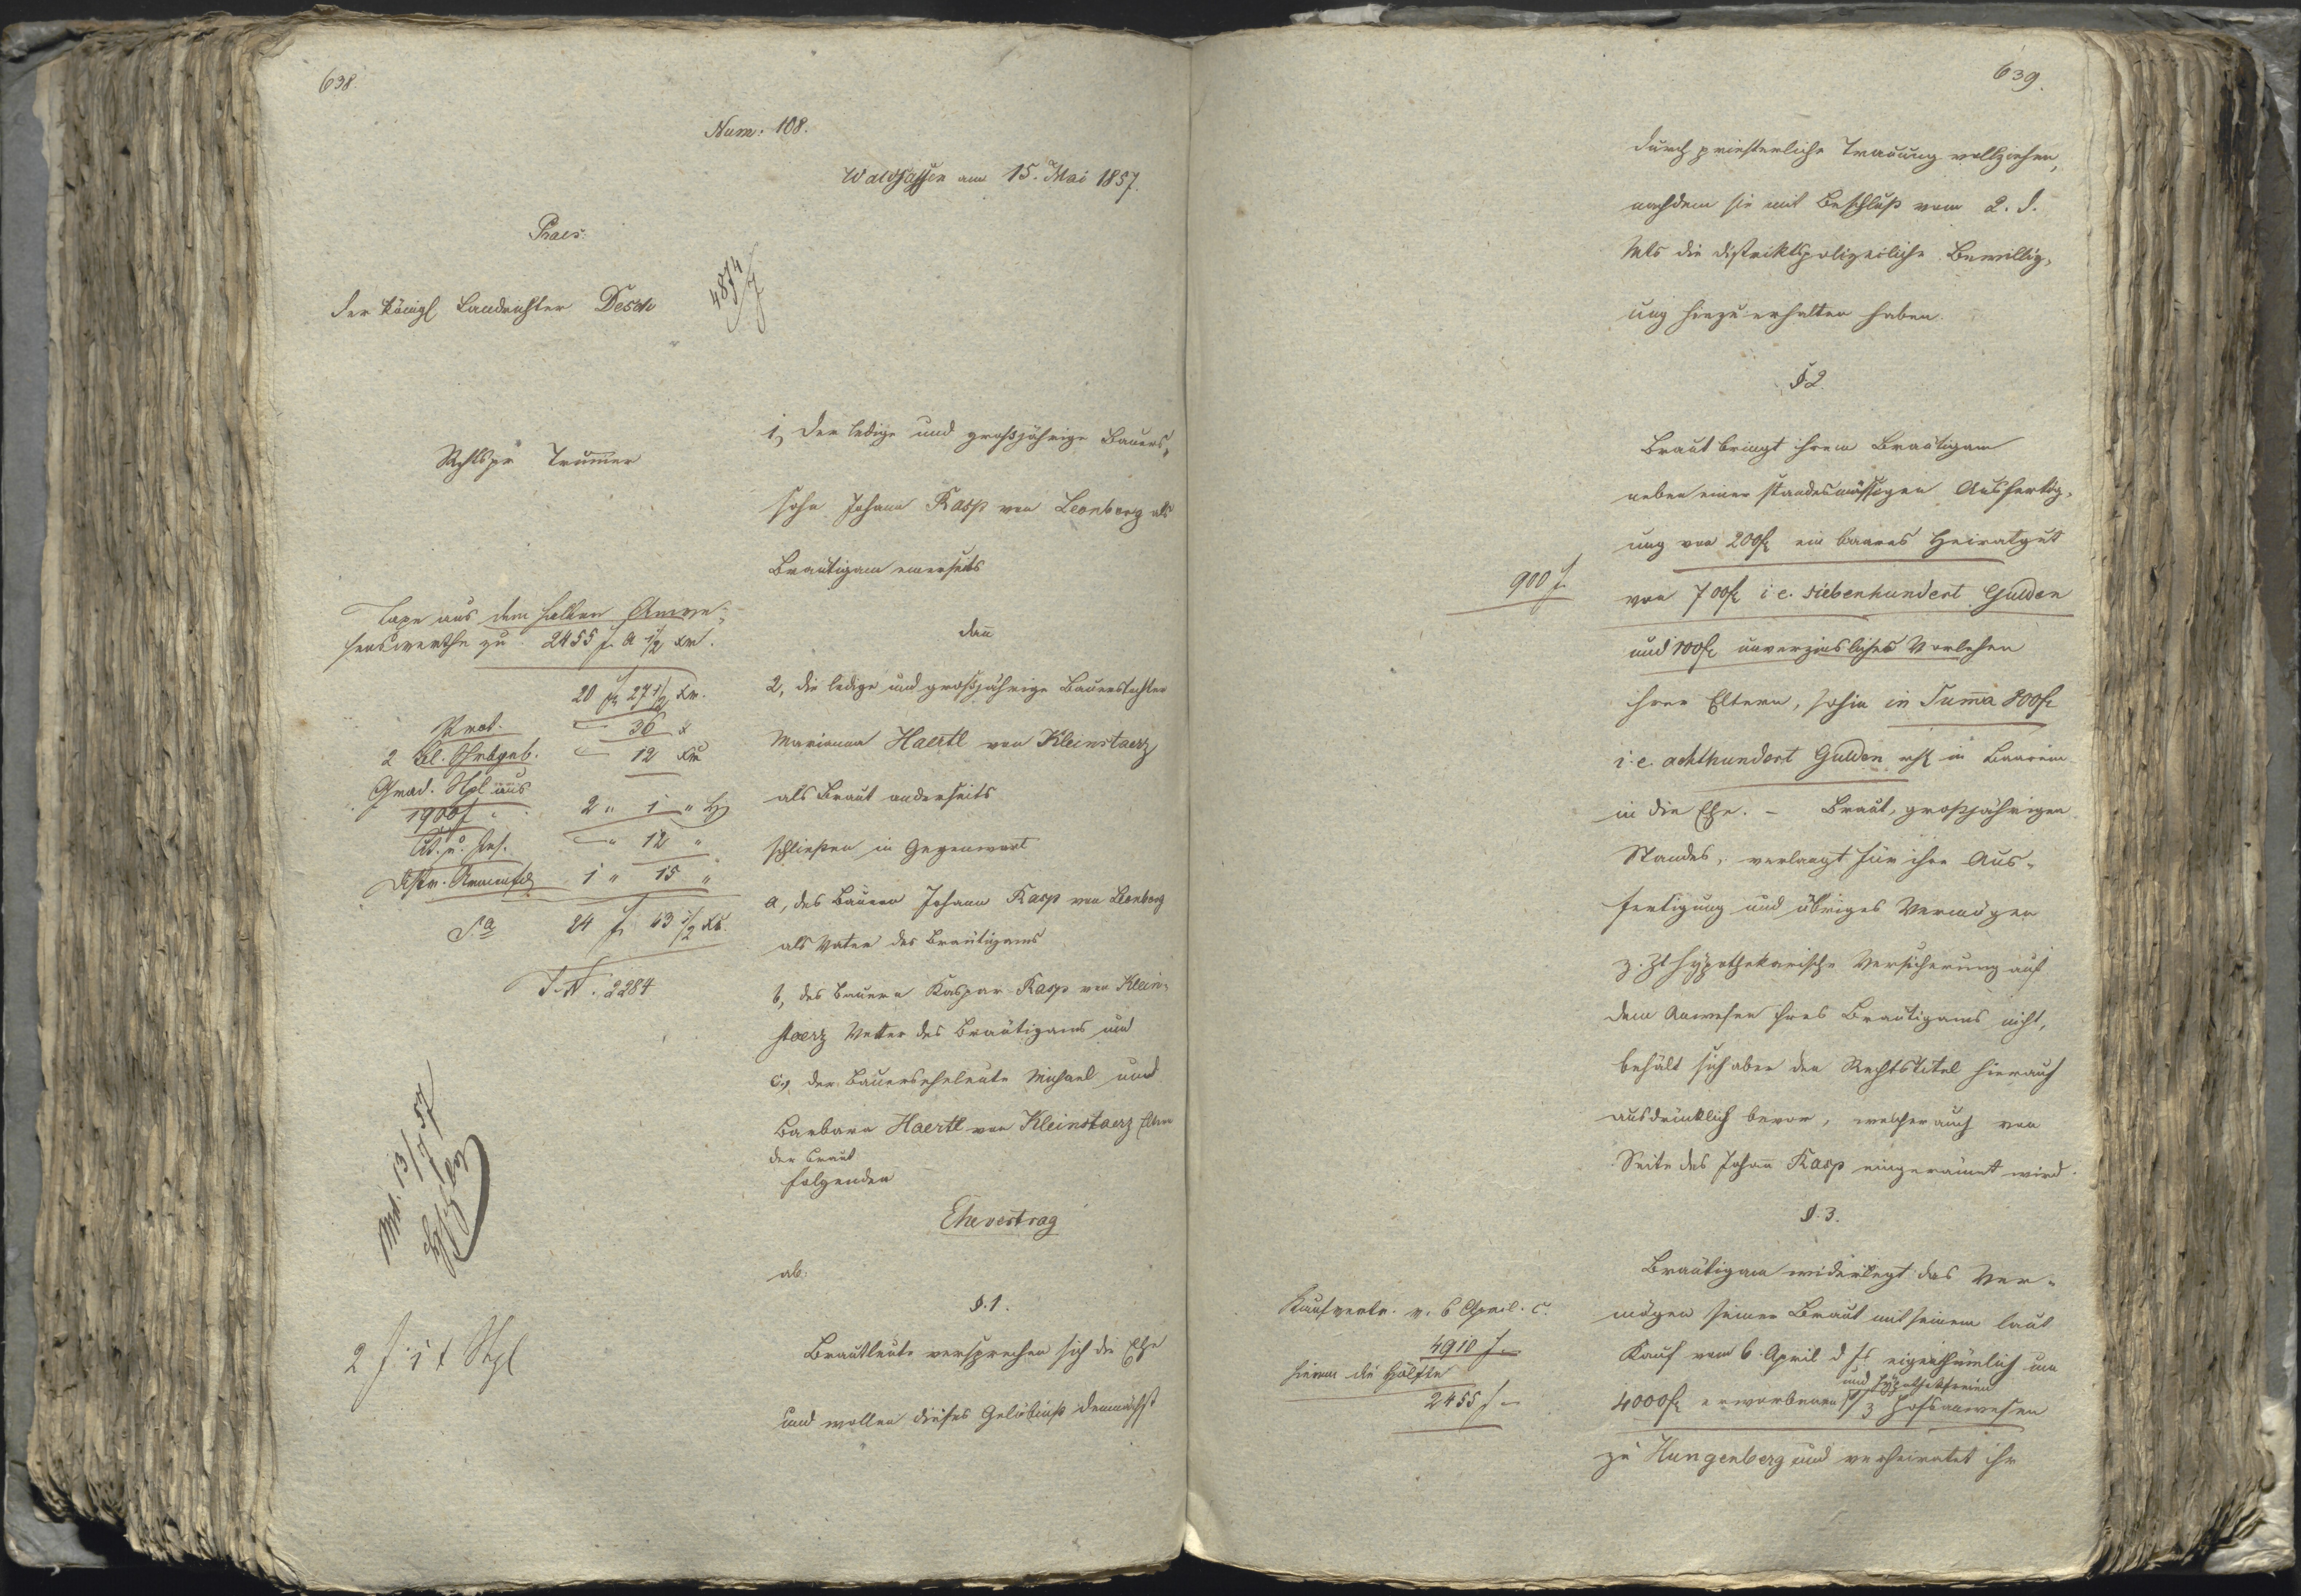 638.
Num: 108.
Waldsassen am 15. Mai 1857.
Praes.
der königl Landrichter Desch
4874
Rchtspr Trummer
Taxe aus dem halben Anwe-
senswerthe zu 2455 f a 1/2 xr.
20 f 27 1/2 xr.
Prot. — 36 x
2 Bl. Schrbgeb. — 12 xr
Grad. Stpl aus
1900 f 2 " 1 "
— " 12 "
Distr. Armenfd 1 " 15 "
Sa 24 f 43 1/2 xr.
T. N. 2284
13/7 57
2 f 1 x Stpl
1, Der ledige und großjährige Bauers-
sohn Johann Rasp von Leonberg als
Bräutigam einerseits
dann
2, die ledige und großjährige Bauerstochter
Marianna Haertl von Kleinstaerz
als Braut anderseits
schließen in Gegenwart
a, des Bauern Johann Rasp von Leonberg
als Vater des Bräutigams
b, des Bauern Kaspar Rasp von Klein-
staerz Vetter des Bräutigams und
c, der Bauerseheleute Michael und
Barbara Haertl von Kleinstaerz Eltern
der Braut
folgenden
Ehevertrag
ab.
§. 1.
Brautleute versprechen sich die Ehe
und wollen dieses Gelöbniß demnächst
639.
durch priesterliche Trauung vollziehen,
nachdem sie mit Beschluß vom 2. d.
Mts die distriktspolizeiliche Bewillig-
ung hiezu erhalten haben.
§ 2.
Braut bringt ihrem Bräutigam
neben einer standesmässigen Ausfertig-
ung von 200 f ein baares Heiratgut
900 f.
von 700 f i. e. siebenhundert Gulden
und 100 f unverzinsliches Vorlehen
ihrer Eltern, sohin in Summa 800 f
i. e. achthundert Gulden in Baarem
in die Ehe. – Braut, großjährigen
Standes, verlangt für ihre Aus-
fertigung und übriges Vermögen
z. Zt hypothekarische Versicherung auf
dem Anwesen ihres Bräutigams nicht,
behält sich aber den Rechtstitel hierauf
ausdrücklich bevor, welcher auch von
Seite des Johann Rasp eingeräumt wird.
§. 3.
Bräutigam widerlegt das Ver-
Kaufvertr. v. 6 April. c.
mögen seiner Braut mit seinem laut
4910 f –
Kauf vom 6. April d Js eigenthümlich um
hievon die Hälfte
und hypothekfreien
2455 f –
4000 f erworbenen /3 Hofsanwesen
zu Hungenberg und verheiratet ihr